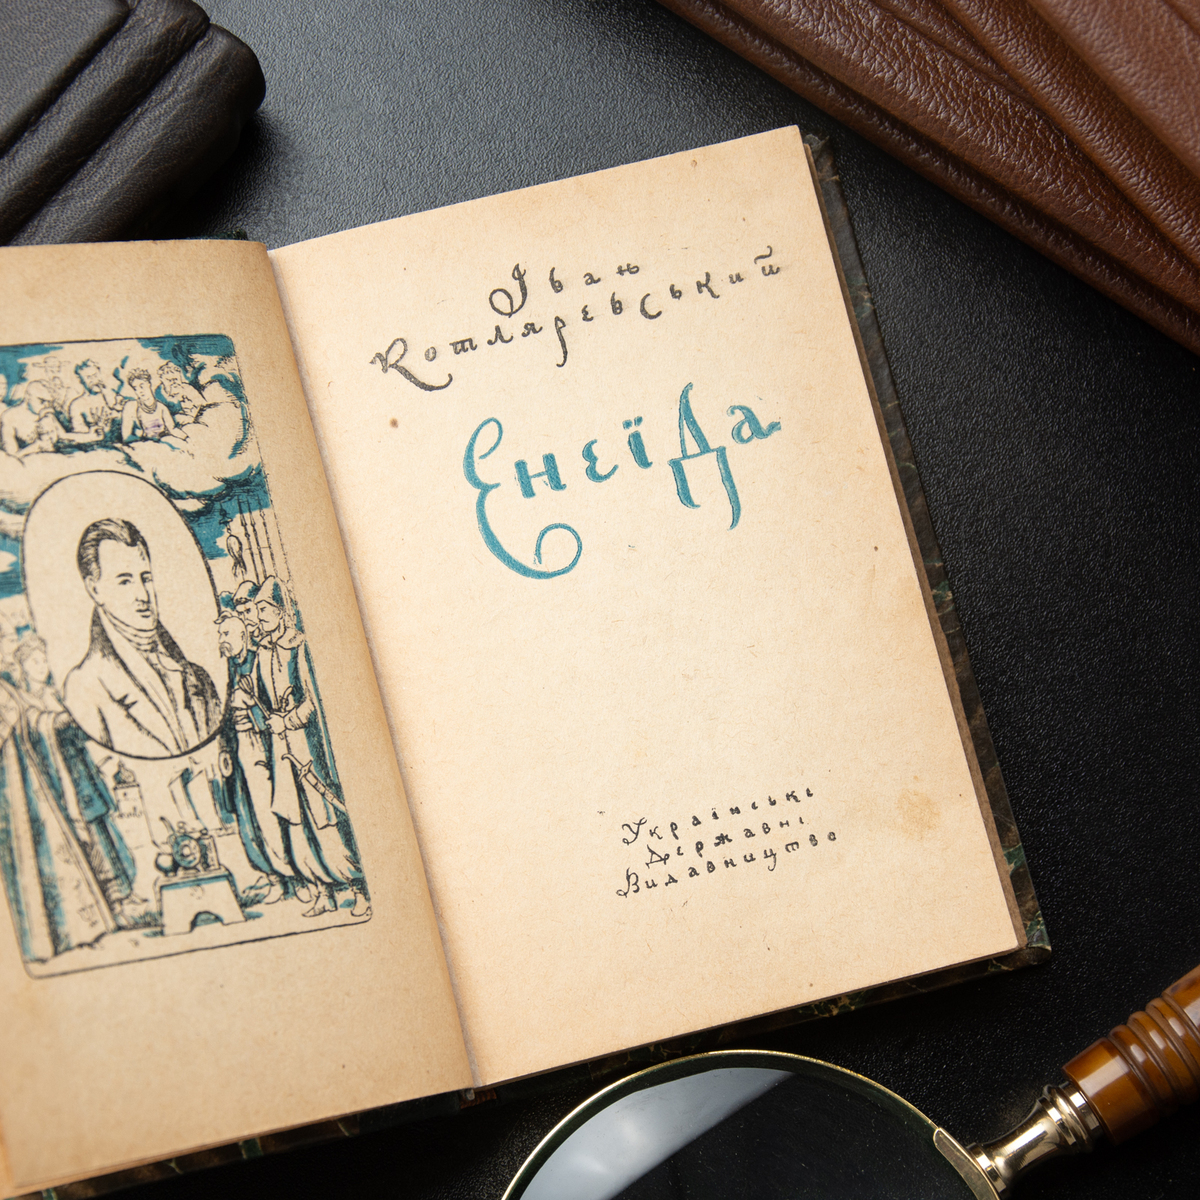 Іван
Котляревський
Енеїда
Українське
Державне
Видавництво